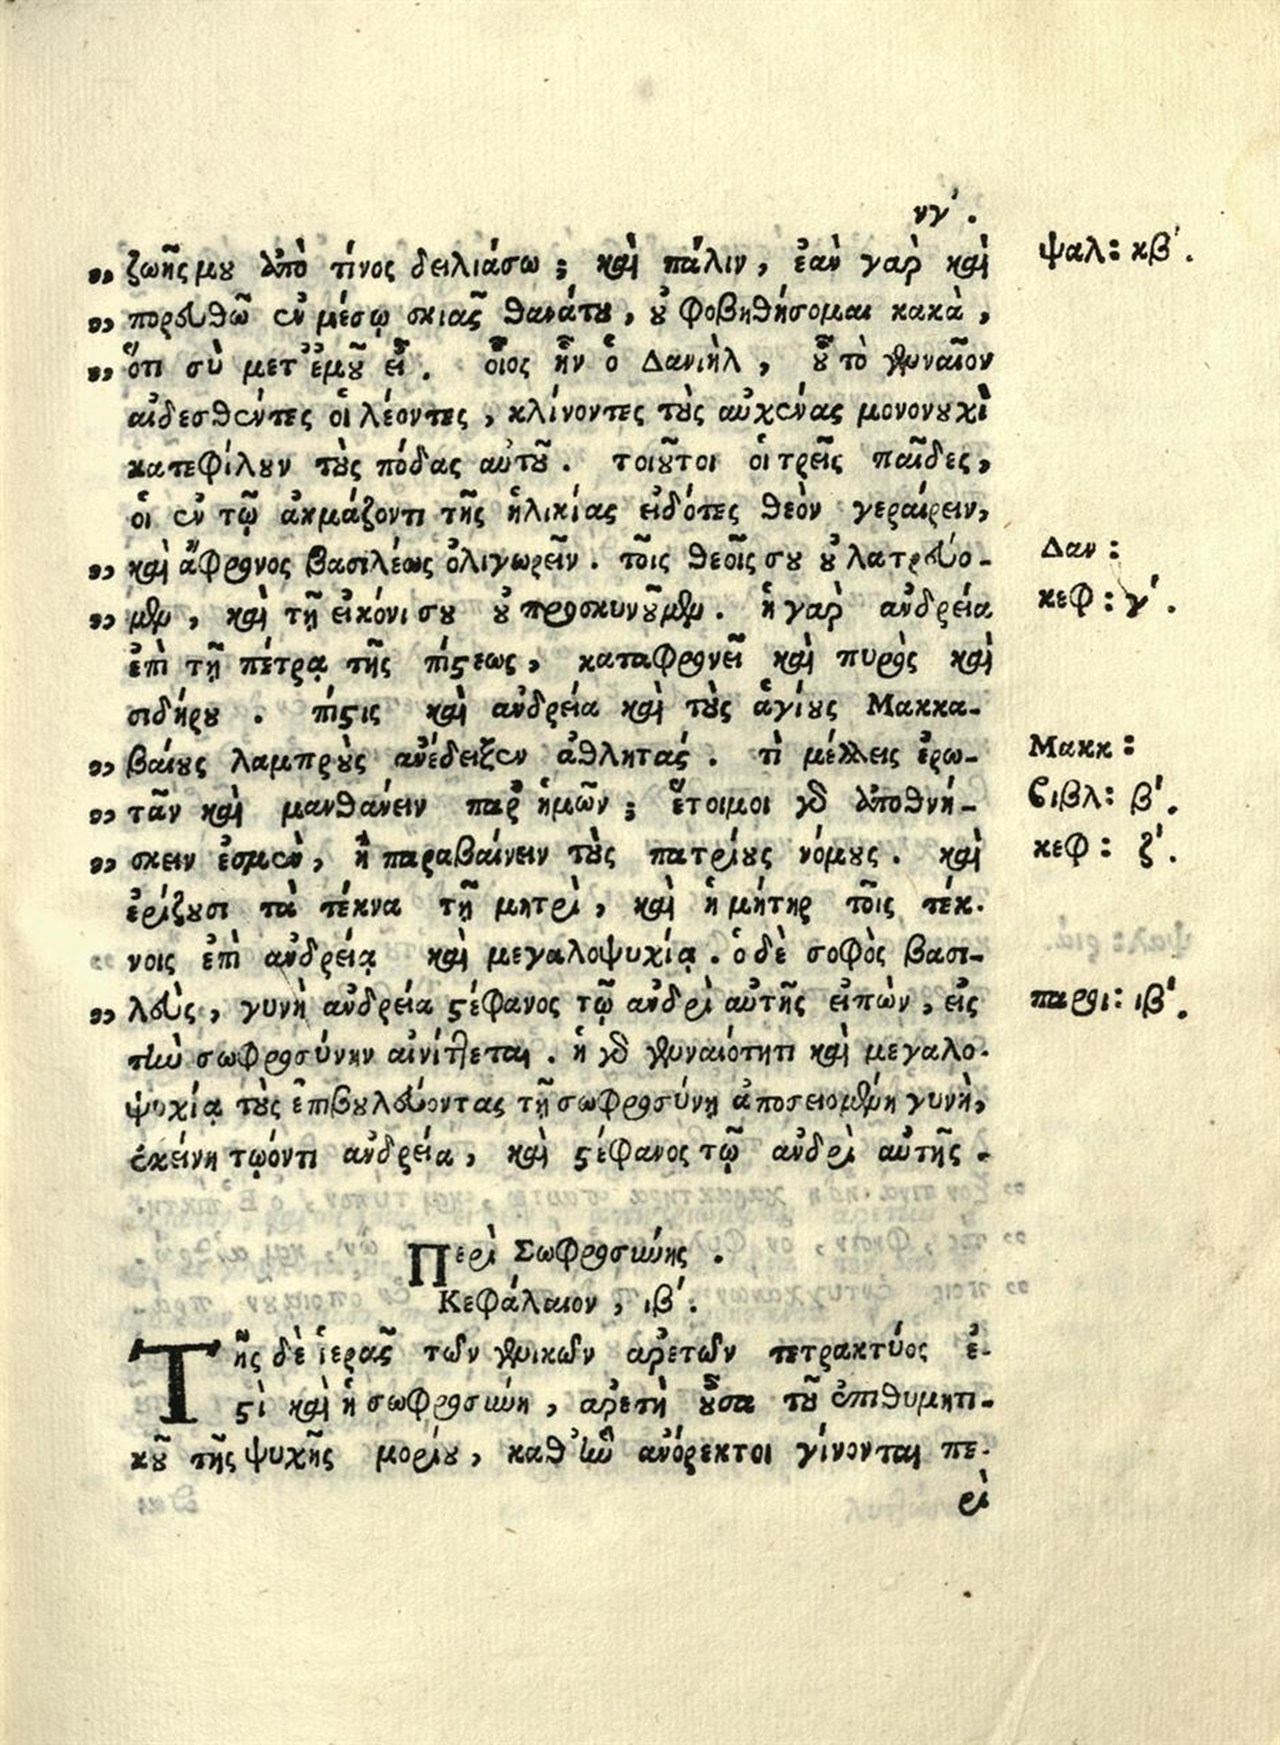 νγʹ.
„ ζωῆς μου ἀπὸ τίνος δειλιάσω; καὶ πάλιν, ἐὰν γαρ καὶ
ψαλ: κβʹ.
„ πορευθῶ ἐν μέσῳ σκιᾶς θανάτου, οὐ φοβηθήσομαι κακὰ,
„ ὅτι σὺ μετ᾽ ἐμοῦ εἶ. οἷος ἦν ὁ Δανιὴλ, οὗ τὸ γενναῖον
αἰδεσθέντες οἱ λέοντες, κλίνοντες τοὺς αὐχένας μονονουχὶ
κατεφίλουν τοὺς πόδας αὐτοῦ. τοιοῦτοι οἱ τρεῖς παῖδες,
οἱ ἐν τῷ ἀκμάζοντι τῆς ἡλικίας εἰδότες θεὸν γεραίρειν,
„ καὶ ἄφρονος βασιλέως ὀλιγωρεῖν. τοῖς θεοῖς σου οὐ λατρεύο-
Δαν:
„ μεν, καὶ τῇ εἰκόνι σου οὐ προσκυνοῦμεν. ἡ γαρ ἀνδρεία
κεφ: γʹ.
ἐπὶ τῇ πέτρᾳ τῆς πίστεως, καταφρονεῖ καὶ πυρὸς καὶ
σιδήρου. πίστις καὶ ἀνδρεία καὶ τοὺς ἁγίους Μακκα-
„ βαίους λαμπροὺς ἀνέδειξεν ἀθλητάς. τὶ μέλλεις ἐρω-
Μακκ:
„ τᾶν καὶ μανθάνειν παρ᾽ ἡμῶν; ἕτοιμοι γὰρ ἀποθνή-
βιβλ: βʹ.
„ σκειν ἐσμὲν, ἢ παραβαίνειν τοὺς πατρίους νόμους. καὶ
κεφ: ζʹ.
ἐρίζουσι τὰ τέκνα τῇ μητρὶ, καὶ ἡ μήτηρ τοῖς τέκ-
νοις ἐπὶ ἀνδρείᾳ καὶ μεγαλοψυχίᾳ. ὁ δὲ σοφὸς βασι-
„ λεὺς, γυνὴ ἀνδρεία στέφανος τῷ ἀνδρὶ αὐτῆς εἰπὼν, εἰς
παροι: ιβʹ.
τὴν σωφροσύνην αἰνίττεται. ἡ γὰρ γενναιότητι καὶ μεγαλο-
ψυχίᾳ τοὺς ἐπιβουλεύοντας τῇ σωφροσύνῃ ἀποσειομένη γυνὴ,
ἐκείνη τῳόντι ἀνδρεία, καὶ στέφανος τῷ ἀνδρὶ αὐτῆς.
Περὶ Σωφροσύνης.
Κεφάλαιον, ιβʹ.
Τῆς δὲ ἱερᾶς τῶν γενικῶν ἀρετῶν τετρακτύος ἐ-
στὶ καὶ ἡ σωφροσύνη, ἀρετὴ οὖσα τοῦ ἐπιθυμητι-
κοῦ τῆς ψυχῆς μορίου, καθ᾽ ἣν ἀνόρεκτοι γίνονται πε-
ρὶ